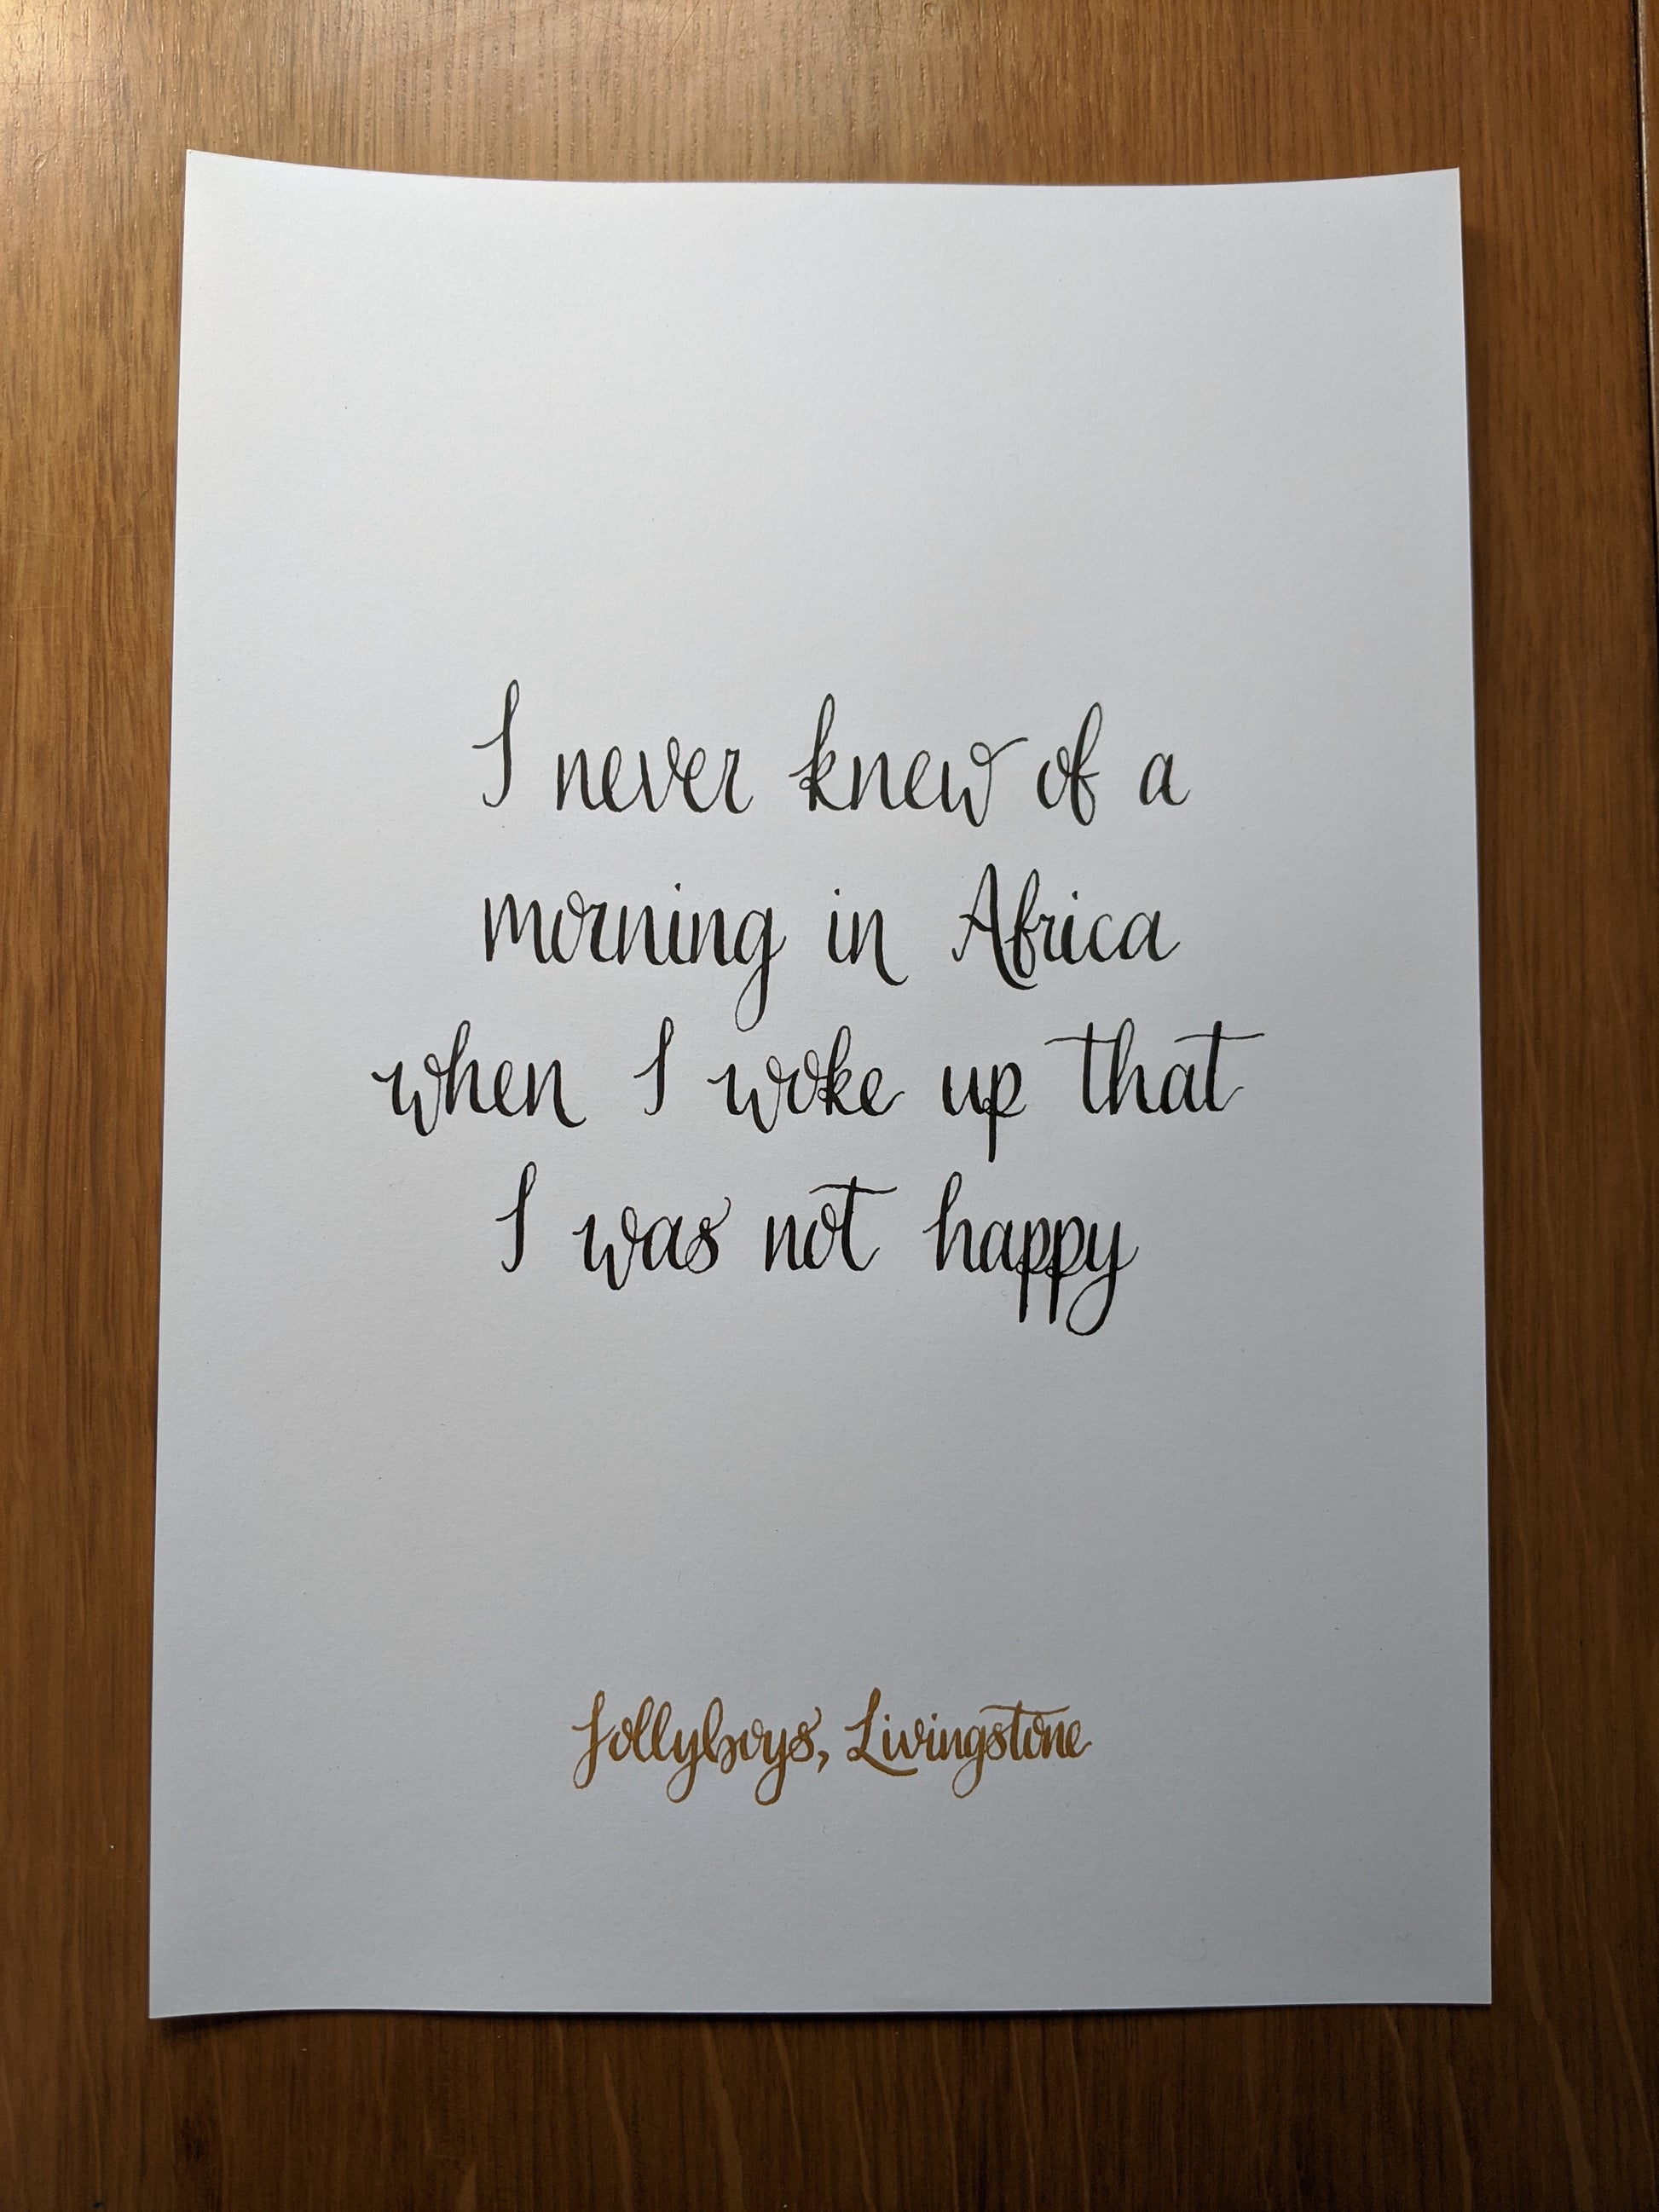 I never knew of a
morning in Africa
when I woke up that
I was not happy
Jollyboys, Livingstone